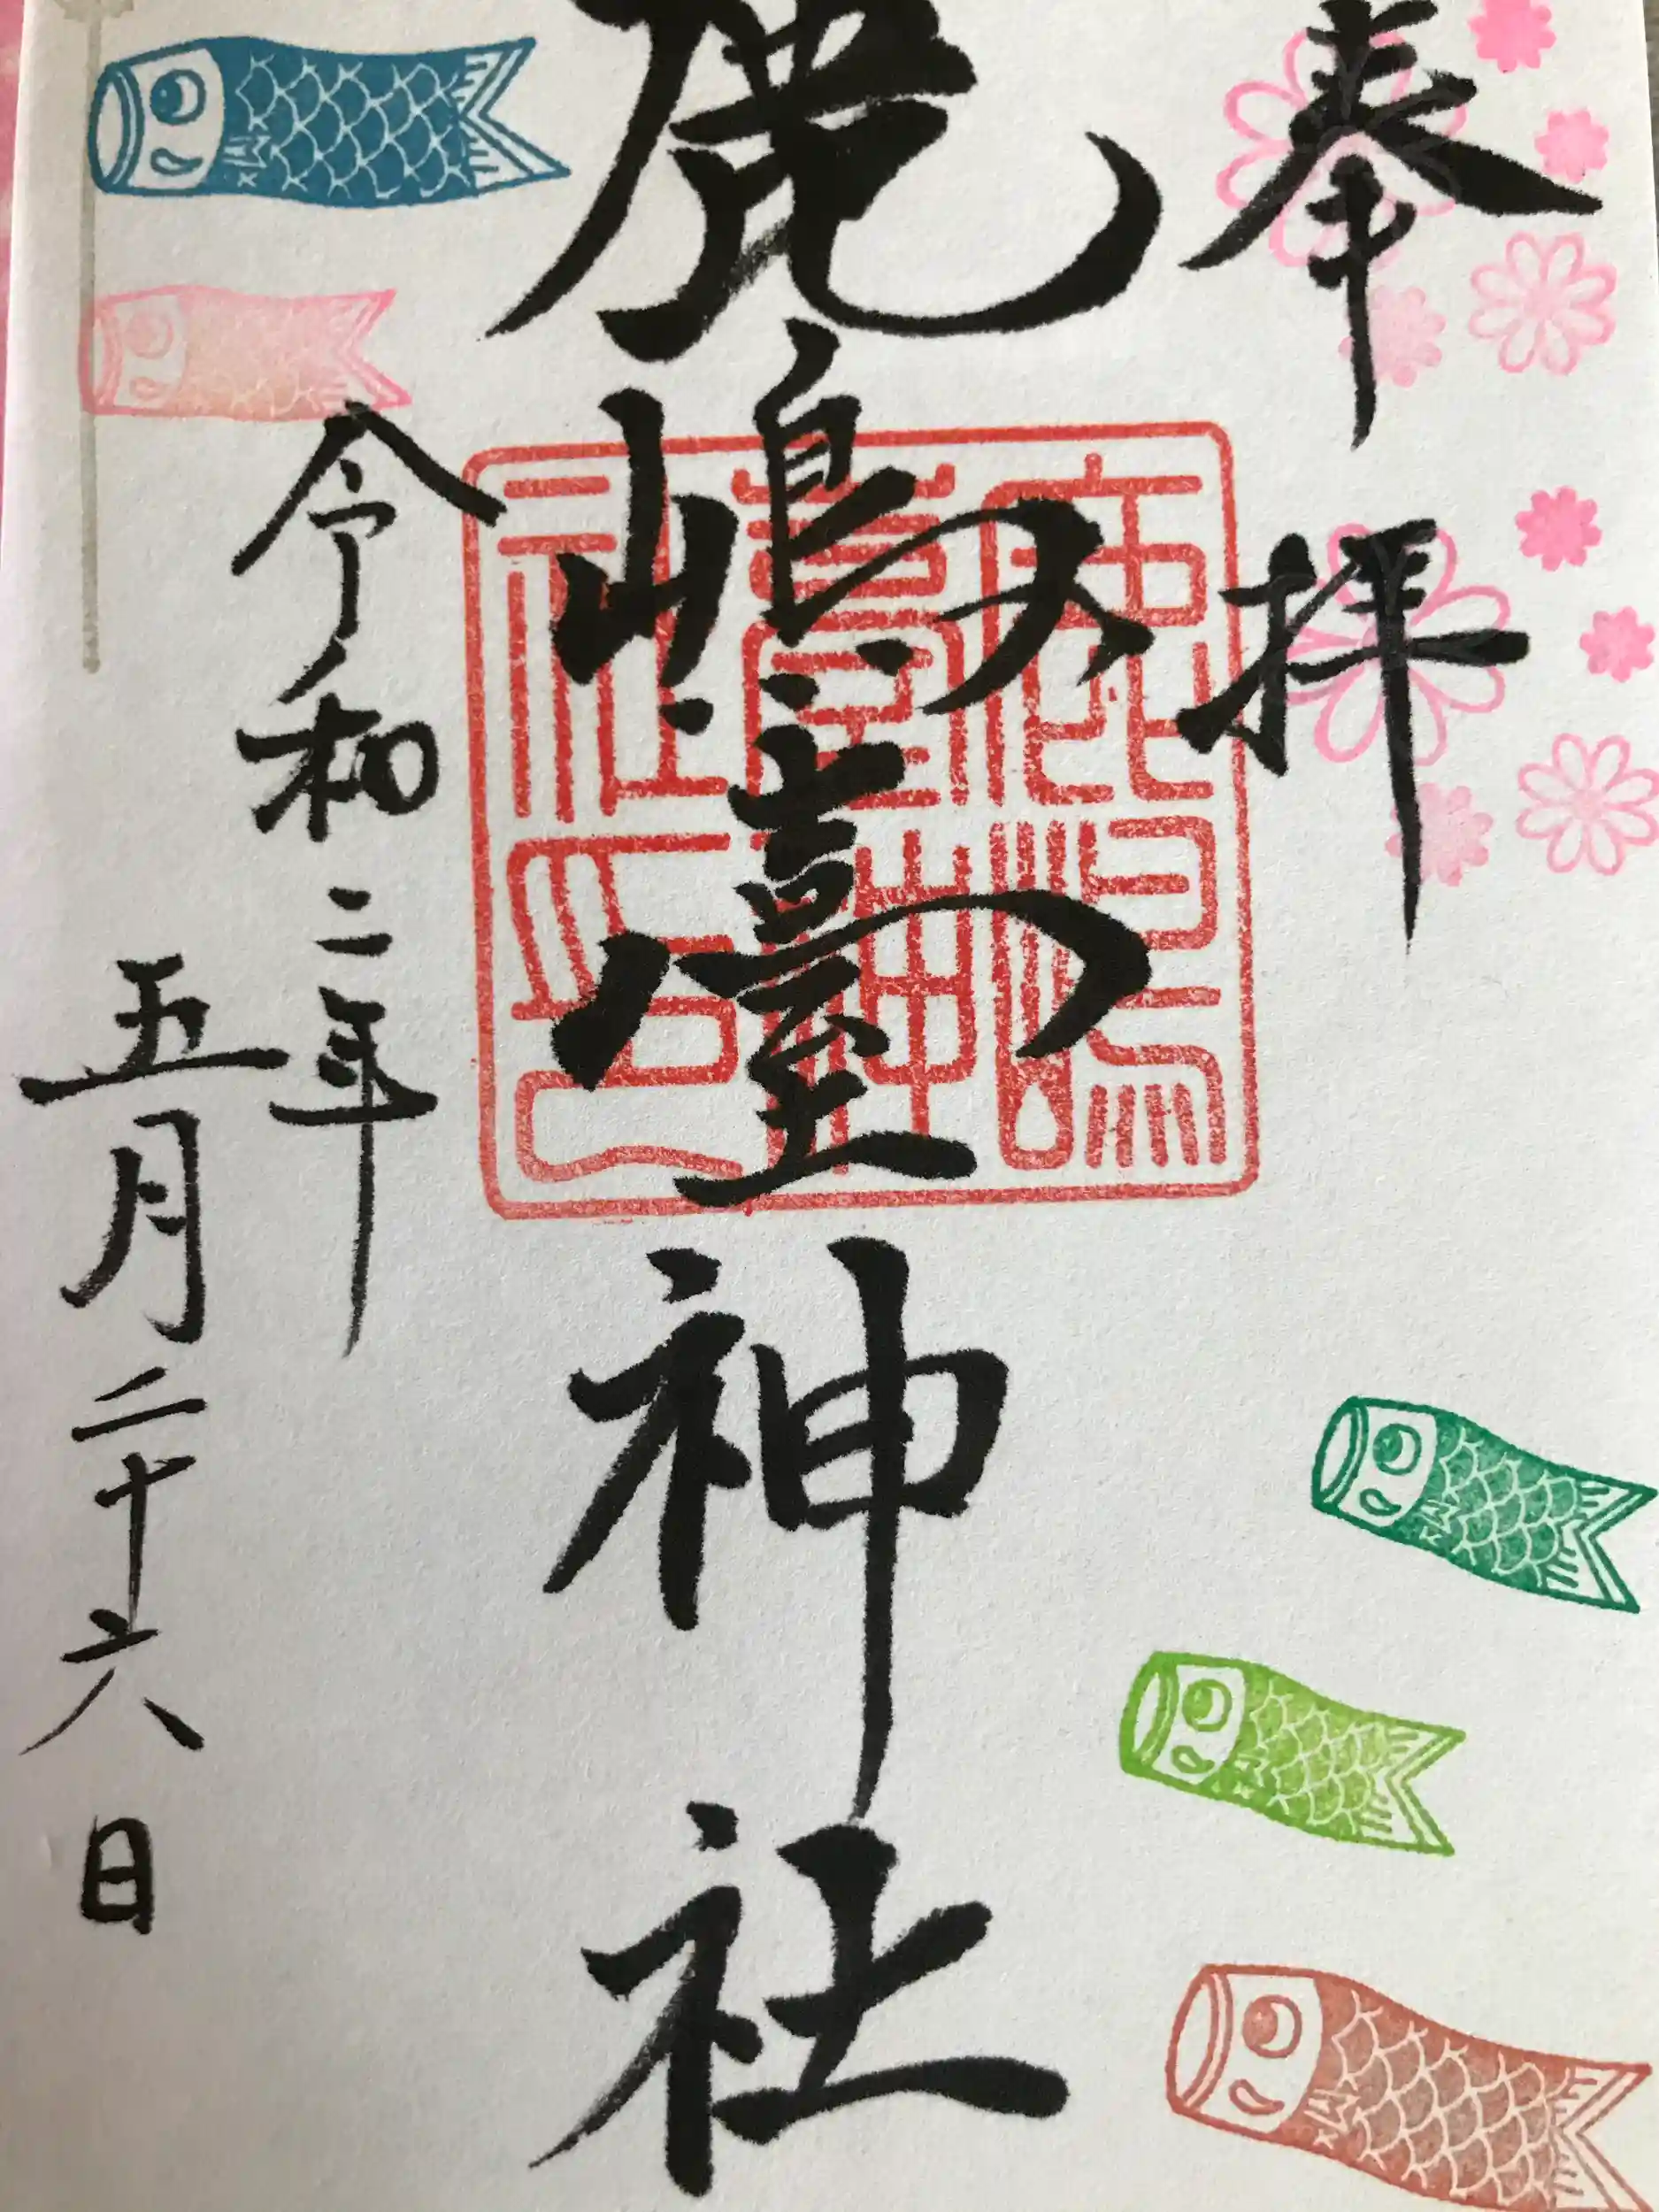 奉拝
鹿嶋臺神社
鹿嶋臺神社印
令和二年
五月二十六日